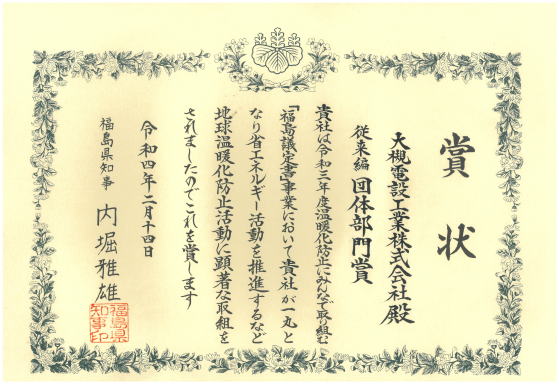 賞状
大槻電設工業株式会社殿
従来編 団体部門賞
貴社は令和三年度温暖化防止にみんなで取り組む
「福島議定書」事業において貴社が一丸と
なり省エネルギー活動を推進するなど
地球温暖化防止活動に顕著な取組を
されましたのでこれを賞します
令和四年二月十四日
福島県知事 内堀雅雄
福島県
知事印